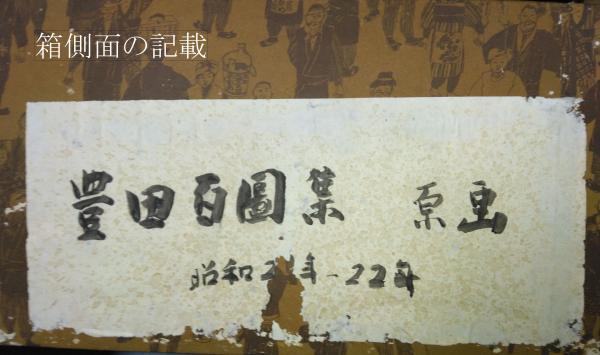 箱側面の記載
豊田百圖集 原画
昭和21年-22年